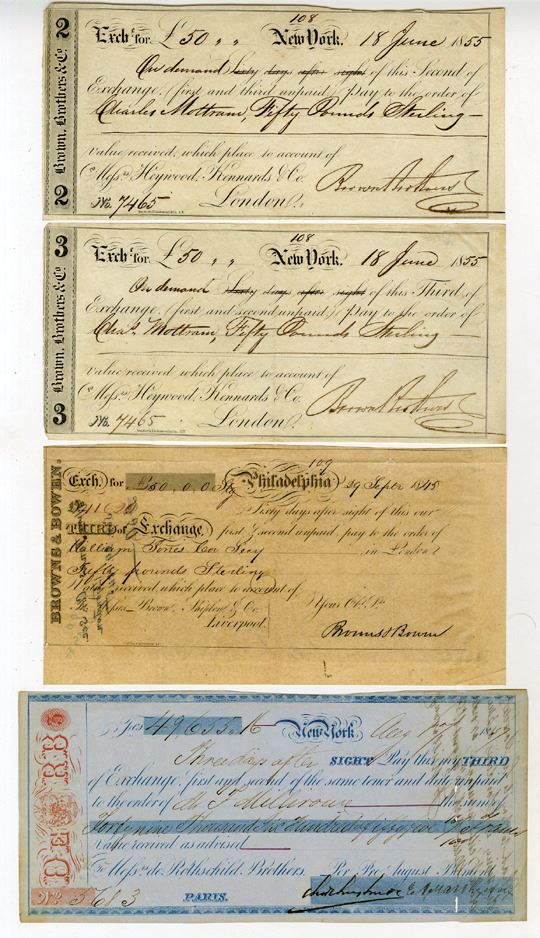 108
2 Brown, Brothers & Co. 2
Exch. for £50 „ „ New York. 18 June 1855
On demand Sixty days after sight of this Second of
Exchange, (first and third unpaid) Pay to the order of
Charles Mottram, Fifty Pounds Sterling
value received, which place to account of
Messrs. Heywood, Kennards & Co.
No. 7465 London.
Brown Brothers
108
3 Brown, Brothers & Co. 3
Exch. for £50 „ „ New York. 18 June 1855
On demand Sixty days after sight of this Third of
Exchange, (first and second unpaid) Pay to the order of
Chas. Mottram, Fifty Pounds Sterling
value received, which place to account of
Messrs. Heywood, Kennards & Co.
No. 7465 London.
Brown Brothers
109
BROWNS & BOWEN.
Exch. for £50.0.0 Stg Philadelphia 29 Septr 1845
Sixty days after sight of this our
THIRD of Exchange, first & second unpaid, pay to the order of
William in London
Fifty pounds Sterling
Value received, which place to account of
Messrs. Brown, Shipley & Co. Your Ob. St.
Liverpool. Browns & Bowen
49655.16 New York,
Three days after SIGHT Pay this my THIRD
of Exchange, first and second of the same tenor and date unpaid
to the order of the sum of
Forty nine Thousand Six Hundred fifty five Francs
Value received as advised
To Messrs. de Rothschild Brothers, Per Pro August Belmont
No. 5683 PARIS.